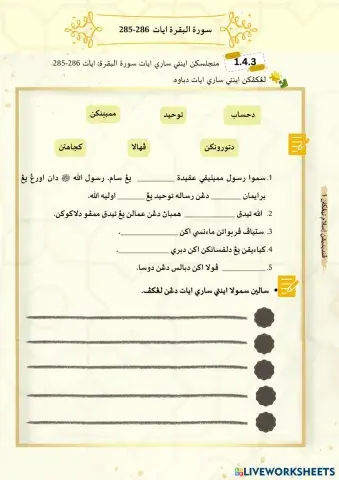 سورة البقرة ايات 286-285
1.4.3 منجلسكن اينتي ساري ايات سورة البقرة: ايات 286-285.
لڠكڤكن اينتي ساري ايات دباوه.
دحساب
توحيد
ممبيبنكن
دتورونكن
ڤهالا
كجاهتن
1. سموا رسول ممبليقي عقيدة ________ يڠ سام. رسول الله ﷺ دان اورڠ يڠ
برايمان ________ دڠن رساله توحيد يڠ ________ اوليه الله.
2. الله تيدق ________ همباڽ دڠن عمالن يڠ تيدق ممڤو دلاكوكن.
3. ستياڤ ڤربواتن مأنسي اكن ________.
4. كباءيقن يڠ دلقساناكن اكن دبري ________.
5. ________ ڤولا اكن دبالس دڠن دوسا.
• سالين سمولا اينتي ساري ايات دڠن لڠكڤ.
LIVEWORKSHEETS